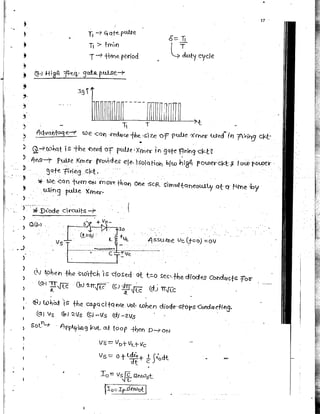 17
Ti → Gate pulse
Ti > tmin
T → time period
δ = Ti
T
↳ duty cycle
Q:) High freq. gate pulse →
IgT
Ti T →t
Advantage → we can reduce the size of pulse xmer used in firing ckt.
Q → what is the need of pulse xmer in gate firing ckt?
Ans → Pulse xmer provides ele. isolation b/w high power ckt & low power
gate firing ckt.
* we can turn on more than one SCR simultaneously at a time by
using pulse xmer.
* Diode Circuits →
Q(1)
S + VD -
(t=0) I0
L + VL
Vs
C + Vc
Assume Vc (t=0) = 0V
(i) When the switch is closed at t=0 sec. the diodes conducts for
(a) π/2 √LC (b) 2π√LC (c) √LC (d) π√LC
(ii) What is the capacitance vol. when diode stops conducting.
(a) Vs (b) 2Vs (c) -Vs (d) -2Vs
Solⁿ → Applying kvl at loop when D → ON
Vs = VD + VL + Vc
Vs = 0 + L di0/dt + 1/C ∫ i0 dt
I0 = Vs √C/L sin ω0t
I0 = Ip sin ω0t